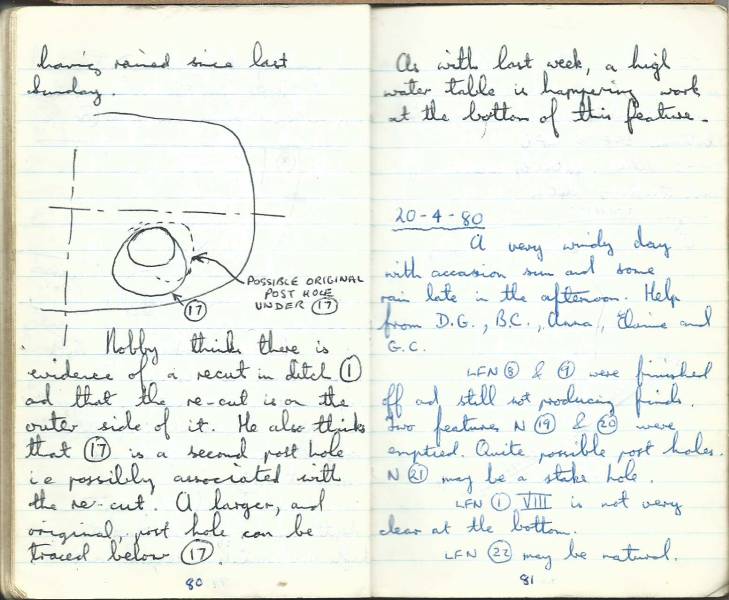 having rained since last
Sunday.
POSSIBLE ORIGINAL
POST HOLE
UNDER 17
17
Nobby thinks there is
evidence of a recut in ditch 1
ad that the re-cut is on the
outer side of it. He also thinks
that 17 is a second post hole
i.e possibly associated with
the re-cut. A larger, and
original, post hole can be
traced below 17.
80
As with last week, a high
water table is hampering work
at the bottom of this feature.
20-4-80
A very windy day
with occasion sun and some
rain late in the afternoon. Help
from D.G., B.C., Anna, Elaine and
G.C.
LFN 8 & 9 were finished
off ad still not producing finds.
Two features N 19 & 20 were
emptied. Quite possible post holes.
N 21 may be a stake hole.
LFN 1 VIII is not very
clear at the bottom.
LFN 22 may be natural.
81